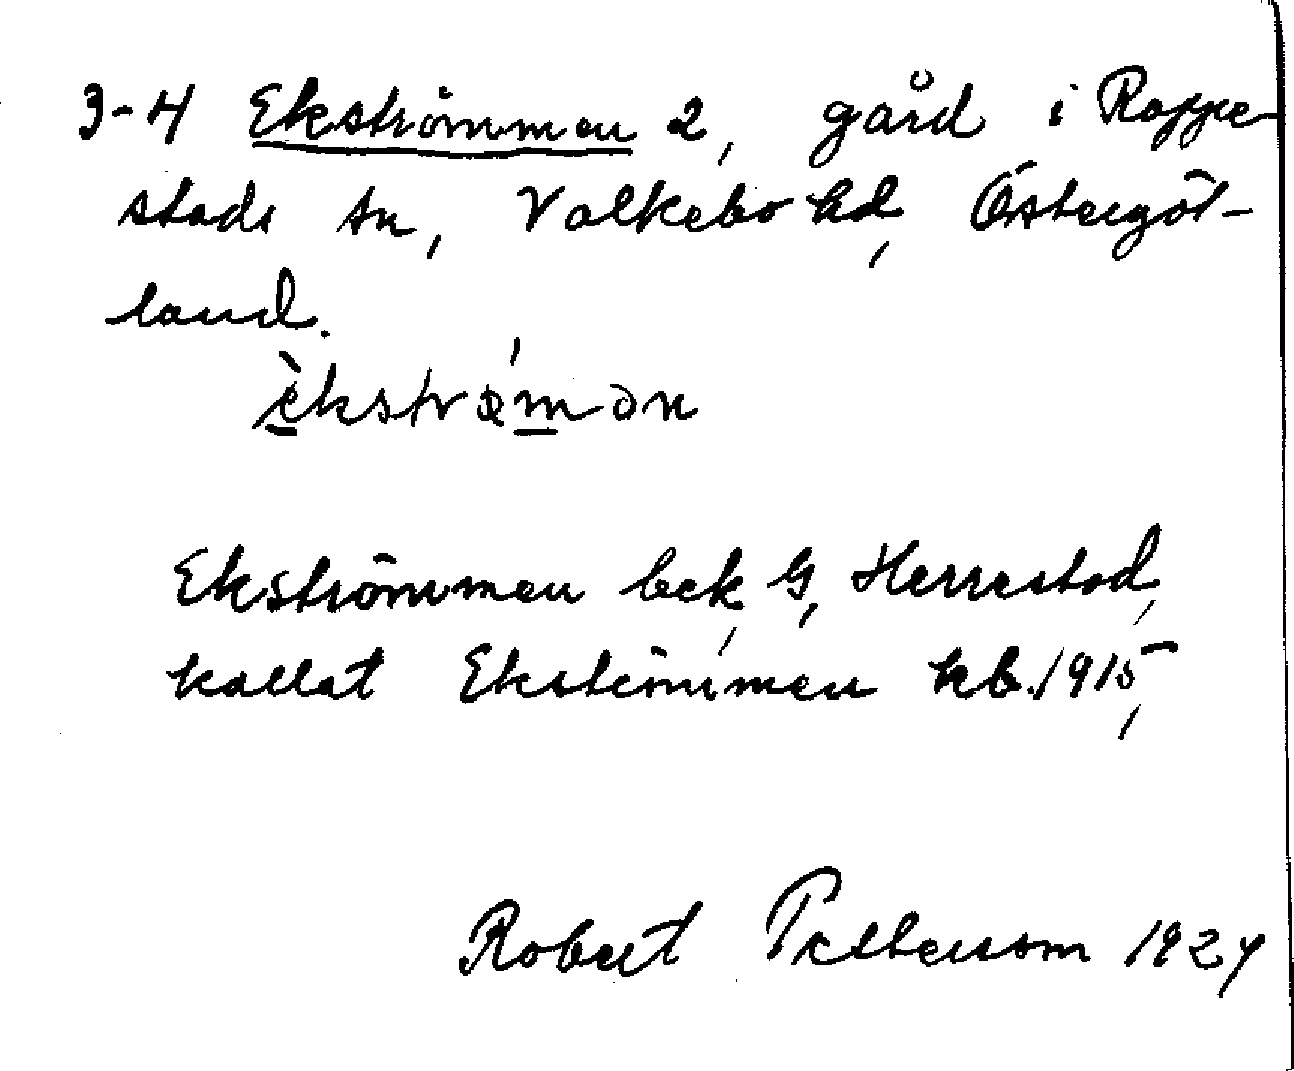 3-4 Ekströmmen 2, gård i Rappe-
stads sn, Valkebo hd, Östergöt-
land.
èkstrœmən
Ekströmmen bek G, Herrestad,
kallat Ekströmmen kb. 1915,
Robert Pettersson 1927